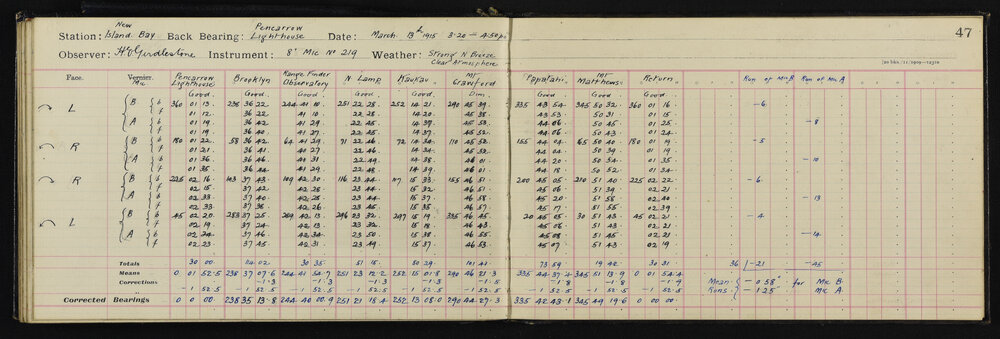 New Pencarrow
Station: Island Bay Back Bearing: Lighthouse Date: March 13th 1915 3·20 — 4·50 p. 47
Observer: H E Girdlestone Instrument: 8" Mic No 219 Weather: Strong N Breeze Clear Atmosphere
Face. Vernier. Mic Pencarrow Lighthouse Brooklyn Range Finder Observatory N. Lamp Kaukau Mt Crawford Papatahi Mt Matthews Return Run of Mic B Run of Mic A
Good. Good. Good. Good. Good. Dim. Good Good. Good.
L B b 360 01 13 238 36 22 244 41 10 251 22 28 252 14 21 290 45 39 335 43 54 345 50 32 360 01 16 -6
f 01 12 36 22 41 10 22 28 14 20 45 38 43 53 50 31 01 15
A b 01 19 36 42 41 29 22 45 14 37 45 53 44 06 50 45 01 25 -8
f 01 19 36 40 41 27 22 45 14 37 45 52 44 06 50 43 01 24
R B b 180 01 22 58 36 42 64 41 29 71 22 46 72 14 34 110 45 52 155 44 04 165 50 40 180 01 19 -5
f 01 21 36 41 40 27 22 46 14 34 45 52 44 04 50 39 01 19
A b 01 36 36 46 40 31 22 49 14 38 46 01 44 20 50 54 01 35 -10
f 01 35 36 44 41 29 22 48 14 39 46 01 44 18 50 52 01 34
R B b 225 02 16 103 37 43 109 42 30 116 23 44 117 15 33 155 46 51 200 45 05 210 51 40 225 02 22 -6
f 02 15 37 42 42 28 23 44 15 32 46 51 45 05 51 39 02 21
A b 02 33 37 40 42 28 23 44 15 37 46 58 45 20 51 58 02 40 -13
f 02 33 37 38 42 26 23 45 15 35 46 57 45 17 51 55 02 39
L B b 45 02 20 283 37 25 289 42 13 296 23 32 297 15 19 335 46 45 20 45 05 30 51 43 45 02 21 -4
f 02 19 37 24 42 13 23 32 15 18 46 43 45 05 51 43 02 21
A b 02 24 37 46 42 34 23 50 15 38 46 55 45 08 51 45 02 21 -14
f 02 23 37 45 42 31 23 49 15 37 46 53 45 07 51 43 02 19
Totals 30 00 114 02 30 35 51 15 50 29 101 41 73 59 19 42 30 31 36 -21 -45
Means 0 01 52·5 238 37 07·6 244 41 54·7 251 23 12·2 252 15 01·8 290 46 21·3 335 44 37·4 345 51 13·9 0 01 54·4 Mean - 0·58" for Mic B.
Corrections -1·3 -1·3 -1·3 -1·3 -1·5 -1·8 -1·8 -1·9 Runs - 1·25" Mic A.
-1 52·5 -1 52·5 -1 52·5 -1 52·5 -1 52·5 -1 52·5 -1 52·5 -1 52·5 -1 52·5
Corrected Bearings 0 0 00 238 35 13·8 244 40 00·9 251 21 18·4 252 13 08·0 290 44 27·3 335 42 43·1 345 49 19·6 0 00 00